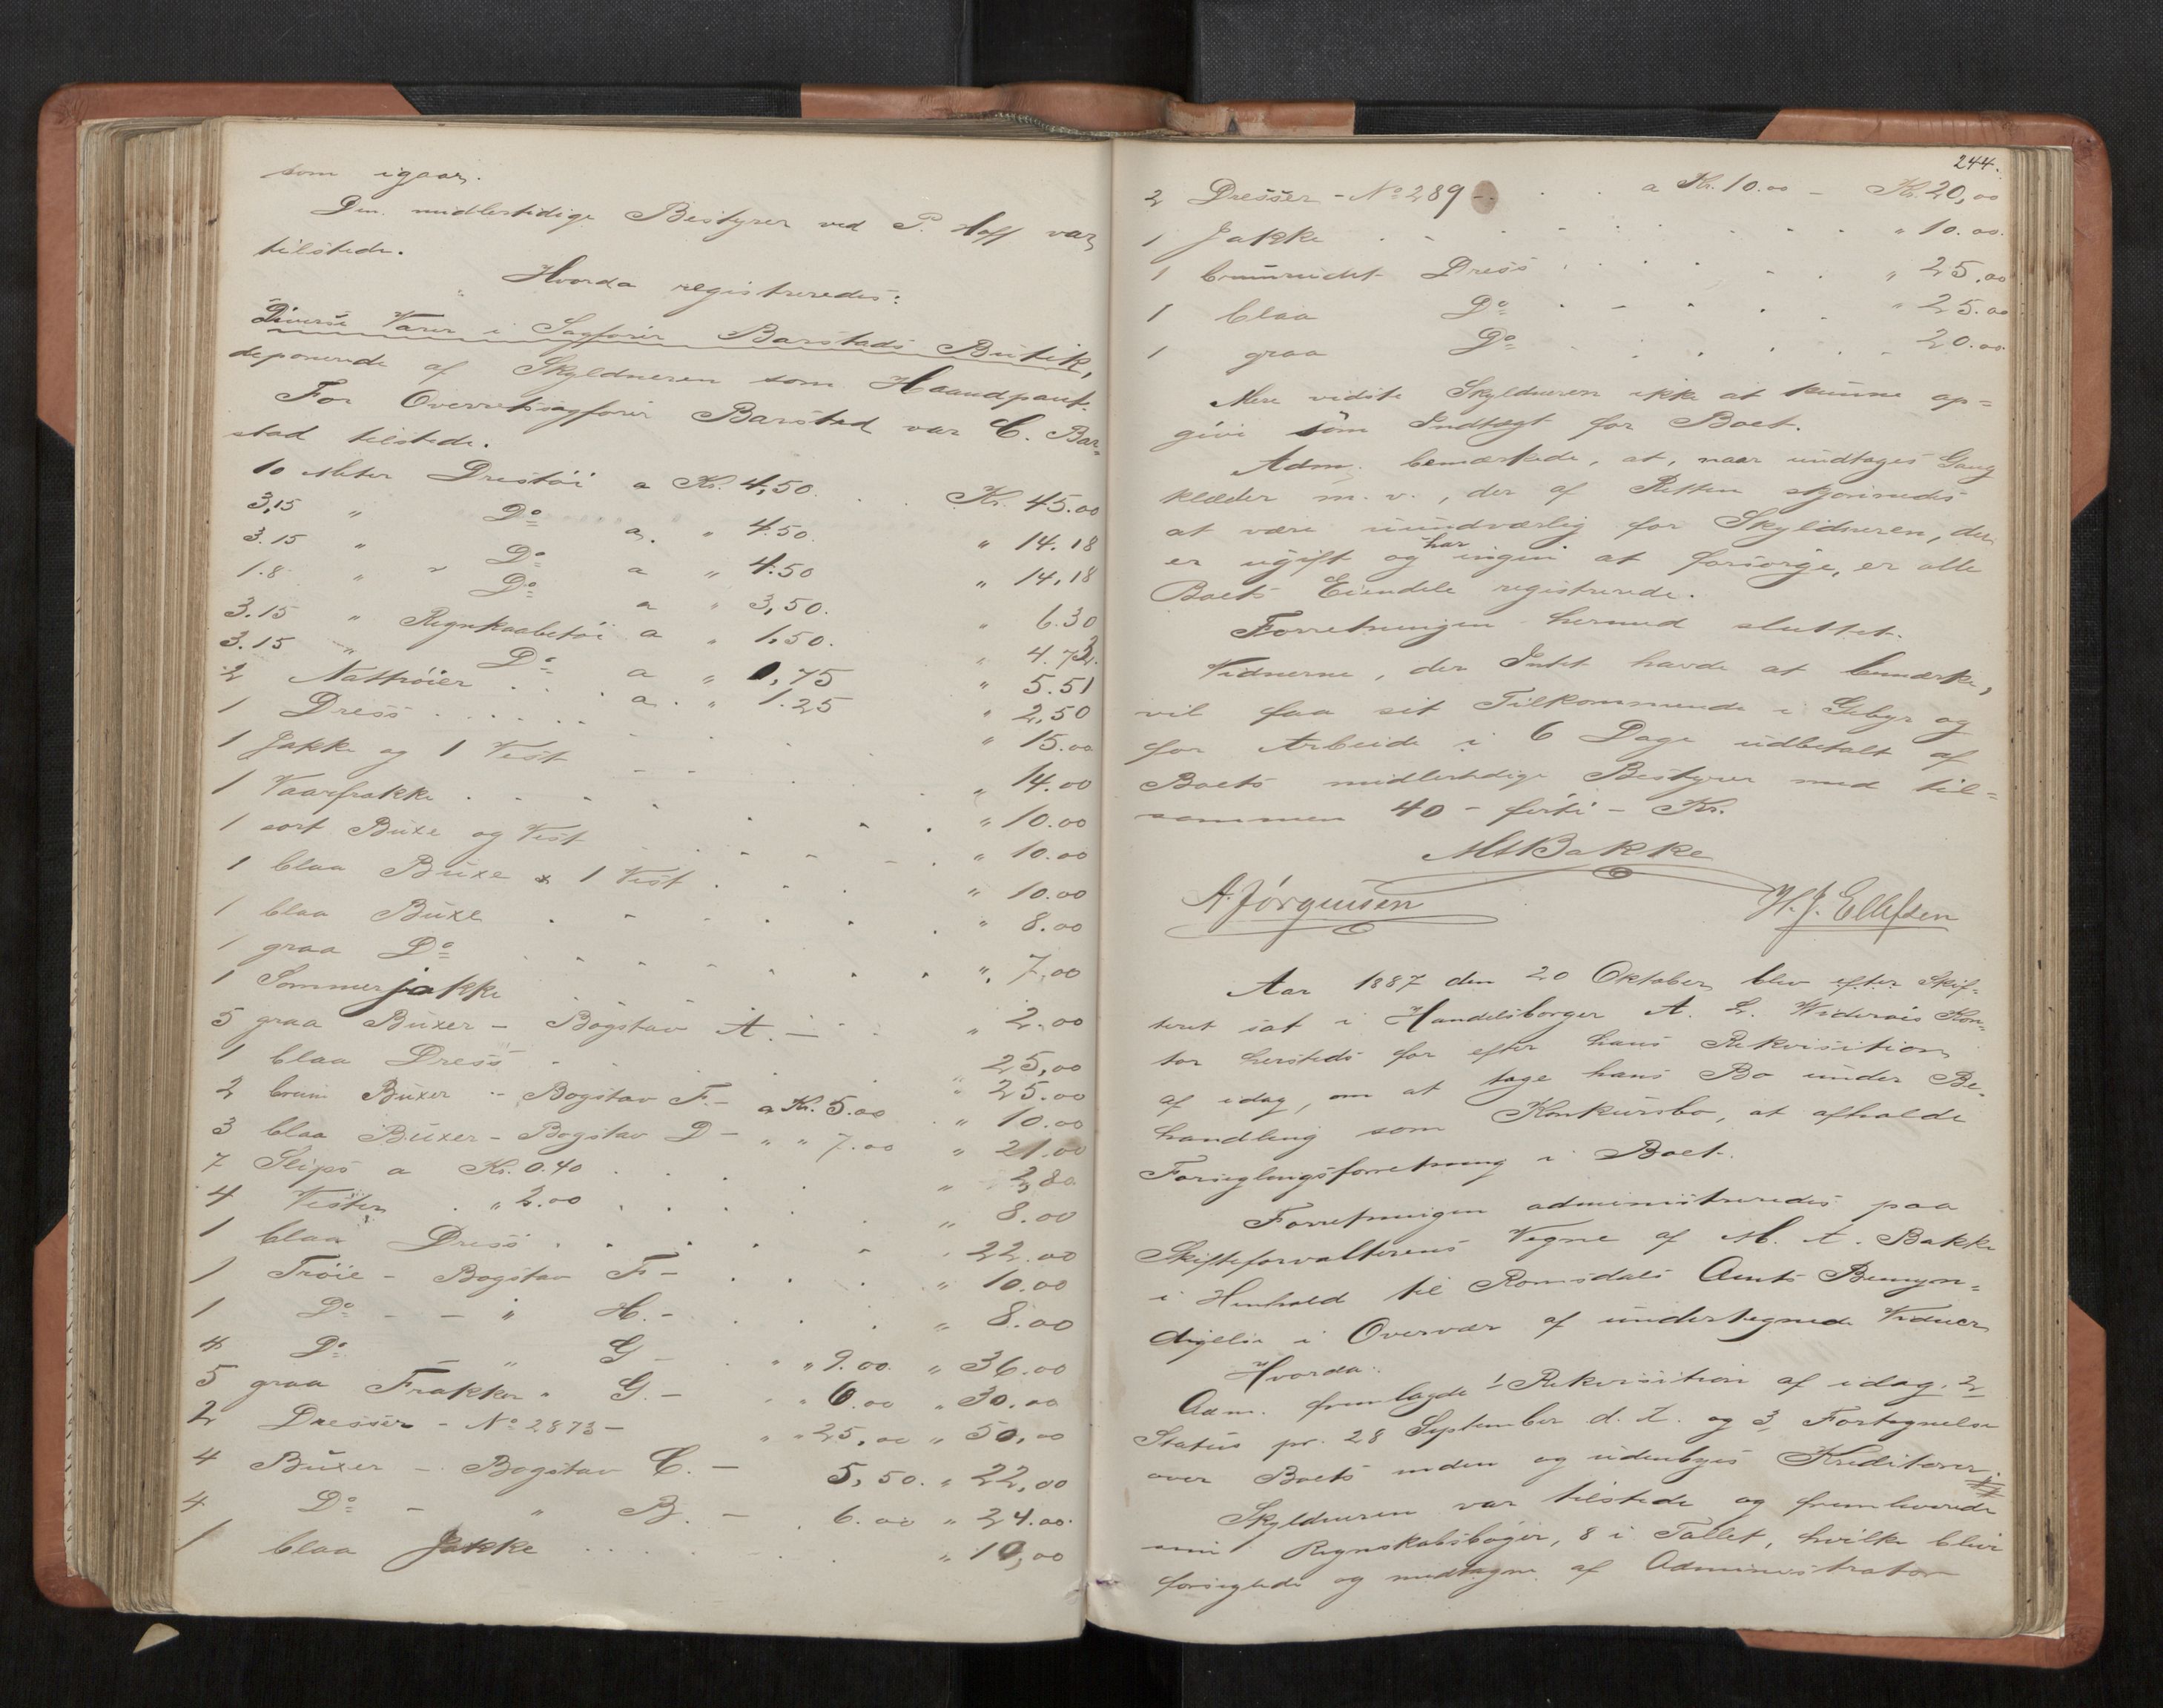 som igaar.
Den midlertidige Bestyrer ved P. Hoff var
tilstede.
Hvorda registreredes:
Diverse Varer i Sagfører Barstads Butik,
deponerede af Skyldneren som Haandpant.
For Overretssagfører Barstad var C. Bar-
stad tilstede.
10 Meter Drestøi a Kr. 4,50. Kr. 45.00
3,15 " Do a " 4.50. " 14.18
3.15 " " Do a " 4.50 " 14,18
1.8 " Do a " 3,50. " 6.30
3.15 " Regnkaabetøi a " 1,50. " 4.72.
3.15 " Do a " 1,75 " 5.51
2 Nattrøier . . . a. " 1.25 " 2,50
1 Dress . . . . . " 15.00
1 Jakke og 1 Vest " 14.00
1 Vaarfrakke . . . " 10.00
1 sort Buxe og Vest . . . " 10.00
1 blaa Buxe & 1 Vest . . . " 10.00
1 blaa Buxe . . . " 8.00
1 graa Do . . . " 7,00
1 Sommerjakke . . . " 2.00
5 graa Buxer - Bogstav A. - " 25,00
1 blaa Dress . . . " 25.00
2 brun Buxer - Bogstav F. - a Kr. 5.00 " 10.00
3 blaa Buxer - Bogstav D - " " 7.00 " 21.00
7 Slips a Kr. 0.40 . . . " 2,80
4 Vester . " 2.00 . . . " 8.00
1 blaa Dress . . . " 22.00
1 Trøie - Bogstav F - . . . " 10.00
1 Do - - " H. - . . . " 8.00
4 Do - " G - . " " 9.00. " 36.00
5 graa Frakker " G. - " 6.00 " 30.00
2 Dresser - No 2873 - " " 25,00 " 50,00
4 Buxer - Bogstav C. - 5,50. " 22,00
4 Do - " B. - . 6.00 " 24.00.
1 blaa Jakke . . . " 10,00
244.
2 Dresser - No 289 - . . a Kr. 10.00 - Kr. 20,00
1 Jakke . . . " 10.00.
1 Dress . . . " 25,00
1 blaa Do . . . " 25.00
1 graa Do . . . 20.00
Mere vidste Skyldneren ikke at kunne op=
give som Indtægt for Boet.
Adm. bemærkede, at, naar undtages Gang
klæder m. v., der af Retten skjønnedes
at være uundværlig for Skyldneren, der
er ugift og har ingen at forsørge, er alle
Boets Eiendele registrerede.
Forretningen hermed sluttet.
Vidnerne, der Intet havde at bemærke,
vil faa sit Tilkommende i Gebyr og
for Arbeide i 6 Dage udbetalt af
Boets midlertidige Bestyrer med til=
sammen 40 - førti - Kr.
MABakke
A. Jørgensen H. J. Ellefsen
Aar 1887 den 20 Oktober blev efter Skif-
teret sat i Handelsborger A. L. Widerøes Kon-
tor hersteds for efter hans Rekvisition
af idag, om at tage hans Bo under Be-
handling som Konkursbo, at afholde
Forseglingsforretning i Boet.
Forretningen administreredes paa
Skifteforvalterens Vegne af M. A. Bakke
i Henhold til Romsdals Amts Bemyn=
digelse i Overvær af undertegnede Vidner
Hvorda:
Adm. fremlagde 1 Rekvisition af idag. 2
Status pr. 28 September d. A. og 3 Fortegnelse
over Boets inden og udenbyes Kreditorer.
Skyldneren var tilstede og fremleverede
sine Regnskabsbøger, 8 i Tallet, hvilke blive
forseglede og medtagne af Administrator